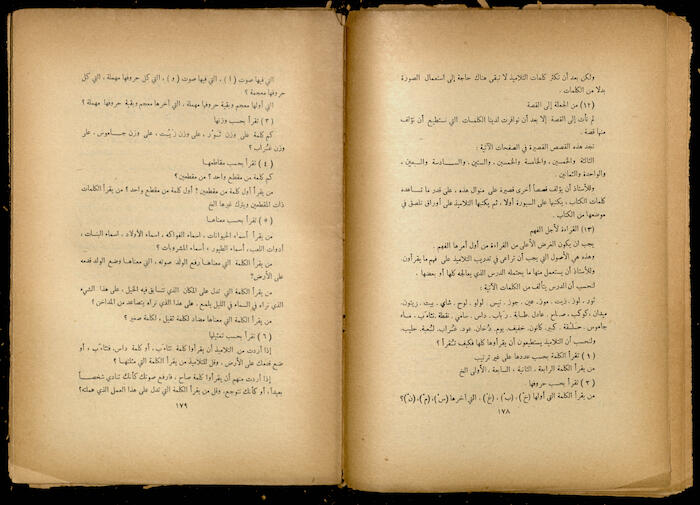 ولكن بعد أن تكثر كلمات التلاميذ لا تبقى هناك حاجة إلى استعمال الصورة
بدلا من الكلمات .
(١٢) من الجملة إلى القصة
لم نأت إلى القصة إلا بعد أن توافرت لدينا الكلمات التي نستطيع أن نؤلف
منها قصة .
تجد هذه القصص القصيرة في الصفحات الآتية :
الثالثة والخمسين ، والخامسة والخمسين ، والستين ، والسادسة والسبعين ،
والواحدة والثمانين .
وللأستاذ أن يؤلف قصصاً أخرى قصيرة على منوال هذه ، على قدر ما تساعده
كلمات الكتاب ، يكتبها على السبورة أولا ، ثم يكتبها التلاميذ على أوراق تلصق في
موضعها من الكتاب .
(١٣) القراءة لأجل الفهم
يجب ان يكون الغرض الأعلى من القراءة من أول أمرها الفهم .
وهذه هي الأصول التي يجب أن تراعى في تدريب التلاميذ على فهم ما يقرأون .
وللأستاذ أن يستعمل منها ما يحتمله الدرس الذي يعالجه كلها أو بعضها .
لنحسب أن الدرس يتألف من الكلمات الآتية :
ثور . لوز . ذيت . موز . عين . جوز . تيس . لولو . لوح . شاي . بيت . زيتون .
ميدان . كوكب . صباح . عادل . طبابة . رباب . داس . سامي . نقطة . تثاءب . مساء
جاموس . حلقة . كبير . كانون . خفيف . يوم . دخان . عود . غراب . لعبة . حليب .
ولنحسب أن التلاميذ يستطيعون أن يقرأوا كلها فكيف تقرأ ؟
(١) تقرأ الكلمة بحسب عددها على غير ترتيب
من يقرأ الكلمة الرابعة ، الثانية ، السابعة ، الأولى الخ
(٢) تقرأ بحسب حروفها
من يقرأ الكلمة التي أولها (خ) ، (ب) ، (خ) ، التي آخرها (س) ، (م) ، (ن) ؟
١٧٨
التي فيها صوت (ا) ، التي فيها صوت (و) ، التي كل حروفها مهملة ، التي كل
حروفها معجمة ؟
التي أولها معجم وبقية حروفها مهملة ، التي آخرها معجم وبقية حروفها مهملة ؟
(٣) تقرأ بحسب وزنها
كم كلمة على وزن ثور ، على وزن زيت ، على وزن جاموس ، على
وزن غراب ؟
(٤) تقرأ بحسب مقاطعها
كم كلمة من مقطع واحد ؟ من مقطعين ؟
من يقرأ أول كلمة من مقطعين ؟ أول كلمة من مقطع واحد ؟ من يقرأ الكلمات
ذات المقطعين ويترك غيرها الخ
(٥) تقرأ بحسب معناها
من يقرأ أسماء الحيوانات ، اسماء الفواكه ، اسماء الأولاد ، اسماء البنات ،
أدوات اللعب ، أسماء الطيور ، أسماء المشروبات ؟
من يقرأ الكلمة التي معناها رفع الولد صوته ، التي معناها وضع الولد قدمه
على الأرض ؟
من يقرأ الكلمة التي تدل على المكان الذي تتسابق فيه الخيل ، على هذا الشيء
الذي نراه في السماء في الليل يلمع ، على هذا الذي نراه يتصاعد من المداخن ؟
من يقرأ الكلمة التي معناها مضاد لكلمة ثقيل ، لكلمة صغير ؟
(٦) تقرأ بحسب تمثيلها
إذا أردت من التلاميذ أن يقرأوا كلمة تثاءب ، أو كلمة داس ، فتثاءب ، أو
ضع قدمك على الأرض ، وقل للتلاميذ من يقرأ الكلمة التي مثلتها ؟
إذا أردت منهم أن يقرأوا كلمة صاح ، فارفع صوتك كأنك تنادي شخصاً
بعيداً ، أو كأنك تتوجع ، وقل من يقرأ الكلمة التي تدل على هذا العمل الذي عملته ؟
١٧٩